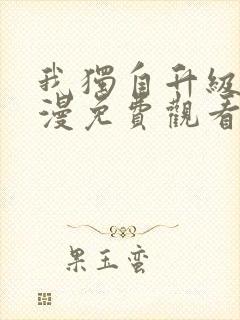 我獨自升級
漫免費觀看
果玉蛮